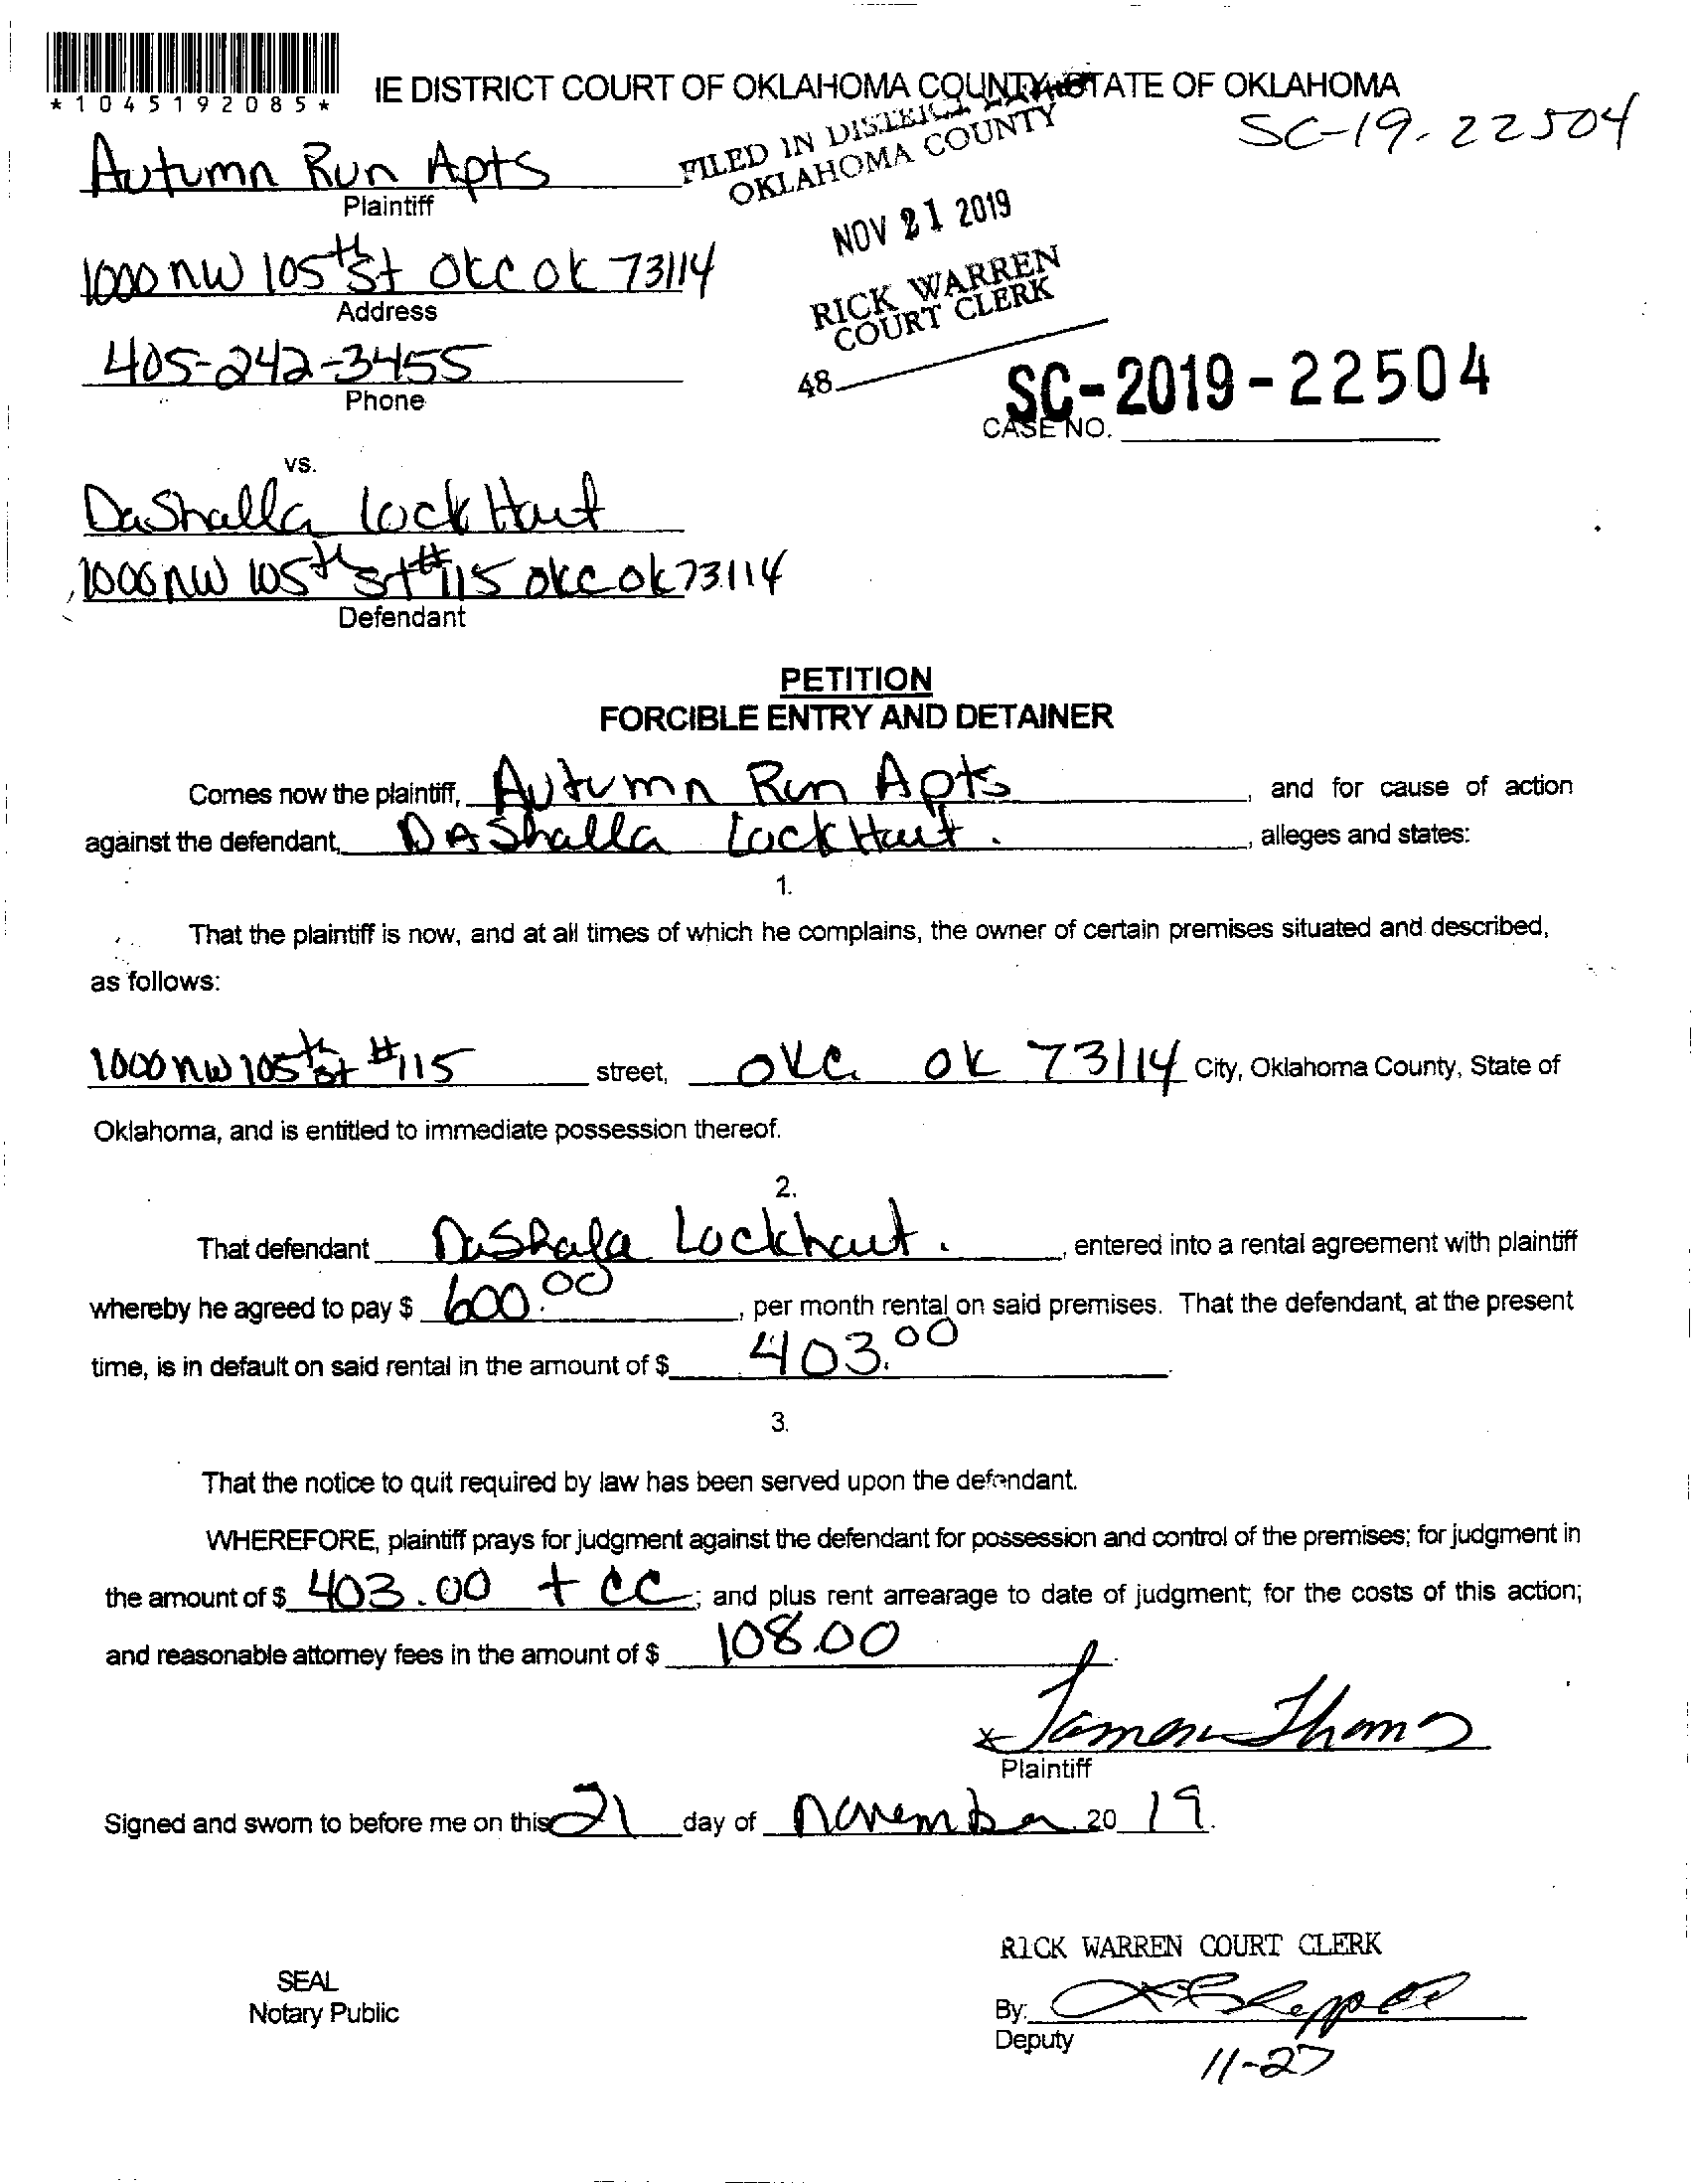 *1045192085*
IE DISTRICT COURT OF OKLAHOMA COUNTY, STATE OF OKLAHOMA
SC-19-22504
FILED IN DISTRICT
OKLAHOMA COUNTY
Autumn Run Apts
Plaintiff
NOV 21 2019
1000 NW 105th St OKC OK 73114
Address
RICK WARREN
COURT CLERK
405-242-3455
Phone
48
SC-2019-22504
CASE NO.
vs.
DaShalla LockHart
1000 NW 105th St #115 OKC OK 73114
Defendant
PETITION
FORCIBLE ENTRY AND DETAINER
Comes now the plaintiff, Autumn Run Apts, and for cause of action
against the defendant, DAShalla LockHart., alleges and states:
1.
That the plaintiff is now, and at all times of which he complains, the owner of certain premises situated and described,
as follows:
1000 NW 105th St #115 street, OKC OK 73114 City, Oklahoma County, State of
Oklahoma, and is entitled to immediate possession thereof.
2.
That defendant DaShala Lockhart., entered into a rental agreement with plaintiff
whereby he agreed to pay $ 600.00, per month rental on said premises. That the defendant, at the present
time, is in default on said rental in the amount of $ 403.00.
3.
That the notice to quit required by law has been served upon the defendant.
WHEREFORE, plaintiff prays for judgment against the defendant for possession and control of the premises; for judgment in
the amount of $ 403.00 + CC; and plus rent arrearage to date of judgment; for the costs of this action;
and reasonable attorney fees in the amount of $ 108.00
x
Plaintiff
Signed and sworn to before me on this 21 day of November 20 19.
RICK WARREN COURT CLERK
SEAL
Notary Public
By:
Deputy
11-27